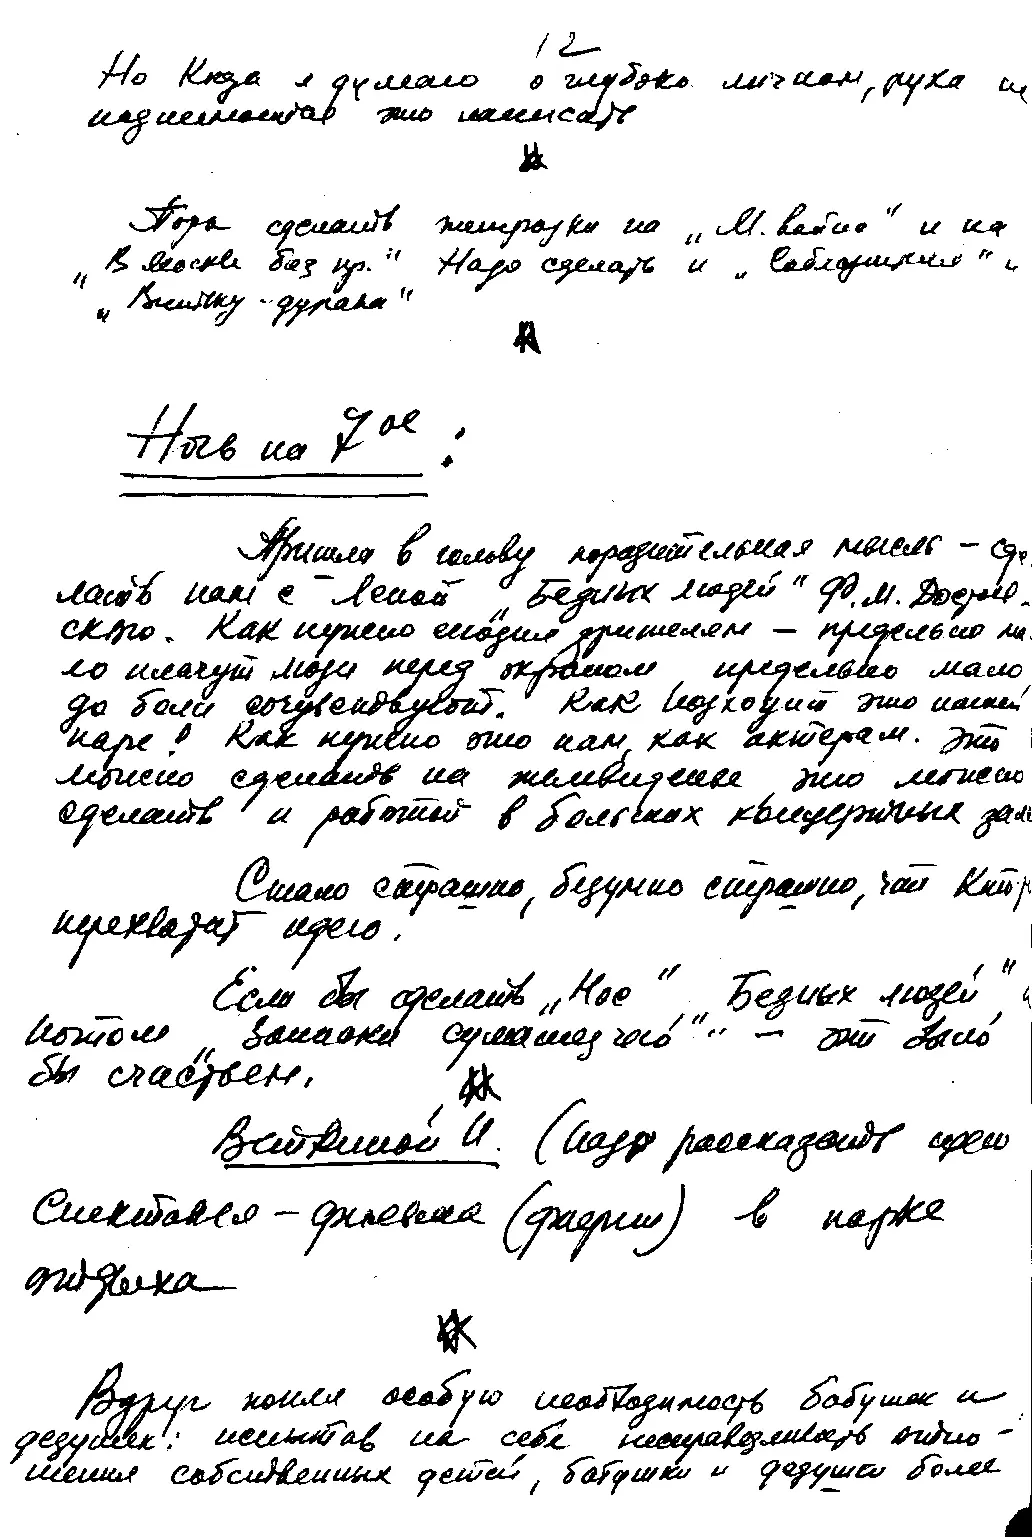 12
Но когда я думаю о глубоко личном, рука не
поднимается это написать
Пора сделать телеграмму на „М. вайно" и на
„В Москве без пр." Надо сделать и „Соблазнителя" и
„Ваньку-дурака"
Ночь на 7ое:
Пришла в голову поразительная мысль – сде
лать нам с Леной „Бедных людей" Ф.М. Достоев-
ского. Как нужно сегодня зрителям – предельно ма
ло плачут люди перед экраном, предельно мало
до боли сочувствуют. Как подходит это нашей
паре! Как нужно это нам, как актерам. Это
можно сделать на телевидении, это можно
сделать и работой в больших концертных зала
Стало страшно, безумно страшно, что кто-то
перехватит идею.
Если бы сделать „Нос", „Бедных людей", и
потом „Записки сумасшедшего" – я бы был
бы счастлив.
Вяткиной И. (надо рассказать идею
Спектакля – фильма (феерии) в парке
отдыха
Вдруг понял особую необходимость бабушек и
дедушек: испытав на себе несправедливость отно-
шения собственных детей, бабушки и дедушки более